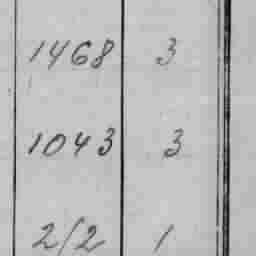 1468 3
1043 3
212 1